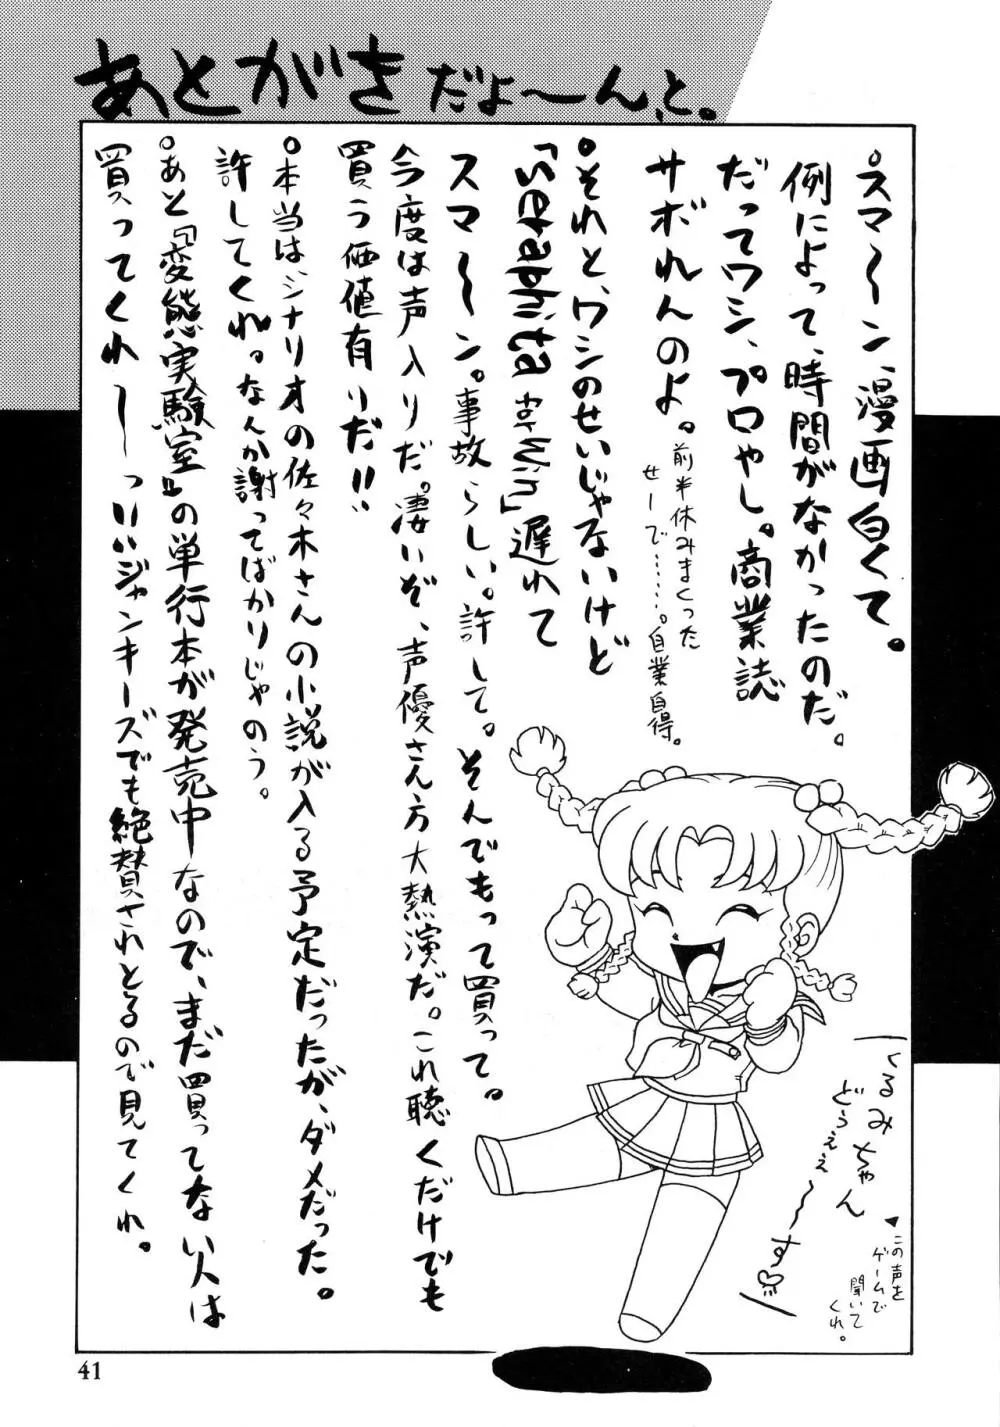 あとがきだよ〜〜ん、と。
。スマ〜〜ン、漫画白くて。
例によって、時間がなかったのだ。
だってワシ、プロやし。商業誌
サボれんのよ。
前半休みまくった
せーで……。自業自得。
。それと、ワシのせいじゃないけど
「Seraphita for Win」遅れて
スマ〜〜ン。事故らしい。許して。そんでもって買って。
今度は声入りだ。凄いぞ、声優さん方大熱演だ。これ聴くだけでも
買う価値有りだ!!
。本当はシナリオの佐々木さんの小説が入る予定だったが、ダメだった。
許してくれ。なんか謝ってばかりじゃのう。
。あと『変態実験室』の単行本が発売中なので、まだ買ってない人は
買ってくれ〜〜っいいジャンキーズでも絶賛されとるので見てくれ。
くるみちゃん
どぅぇぇ〜〜す♡
この声を
ゲームで
聞いて
くれ。
41